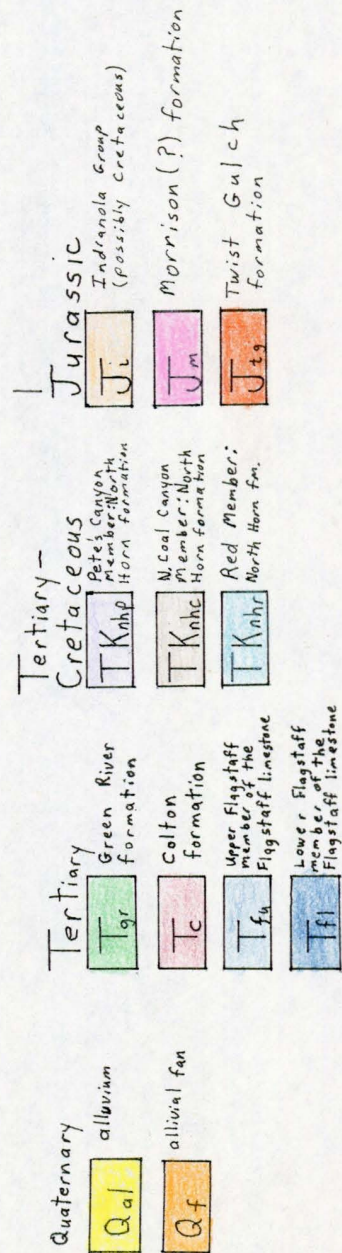 Quaternary
Qal
alluvium
Qf
allivial fan
Tertiary
Tgr
Green River
formation
Tc
Colton
formation
Tfu
Upper Flagstaff
member of the
Flagstaff limestone
Tfl
Lower Flagstaff
member of the
Flagstaff limestone
Tertiary –
Cretaceous
TKnhp
Pete's Canyon
Member: North
Horn formation
TKnhc
N. Coal Canyon
Member: North
Horn formation
TKnhr
Red Member:
North Horn fm.
Jurassic
Ji
Indianola Group
(possibly Cretaceous)
Jm
Morrison (?) formation
Jtg
Twist Gulch
formation